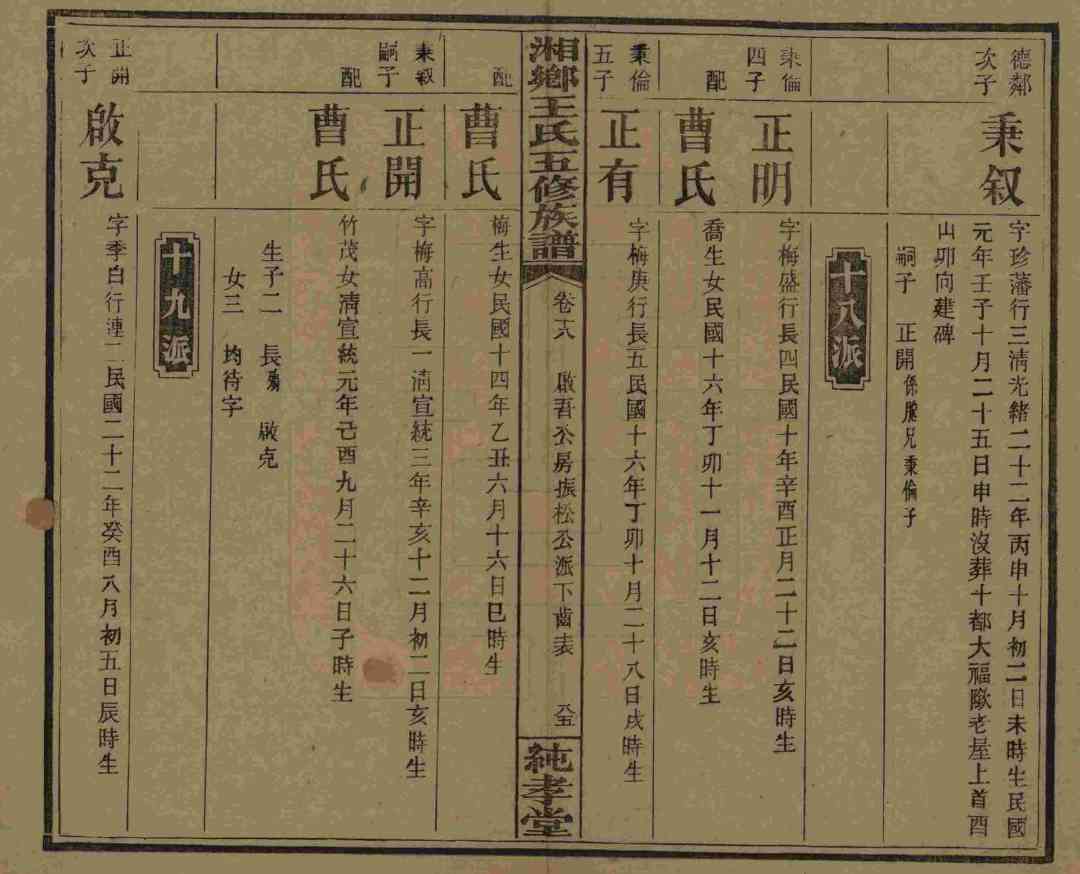 德鄰
次子
秉叙
字珍藩行三清光緒二十二年丙申十月初二日未時生民國
元年壬子十月二十五日申時沒葬十都大福歐老屋上首酉
山卯向建碑
嗣子 正開係胞兄秉倫子
十八派
秉倫
四子
正明
字梅盛行長四民國十年辛酉正月二十二日亥時生
配
曹氏
喬生女民國十六年丁卯十一月十二日亥時生
秉倫
五子
正有
字梅庚行長五民國十六年丁卯十月二十八日戌時生
湘鄉王氏五修族譜
卷十八 啟吾公房振松公派下齒表 八五
純孝堂
配
曹氏
梅生女民國十四年乙丑六月十六日巳時生
秉叙
嗣子
正開
字梅高行長一清宣統三年辛亥十二月初二日亥時生
配
曹氏
竹茂女清宣統元年己酉九月二十六日子時生
生子二 長殤 啟克
女三 均待字
十九派
正開
次子
啟克
字季白行漣二民國二十二年癸酉八月初五日辰時生